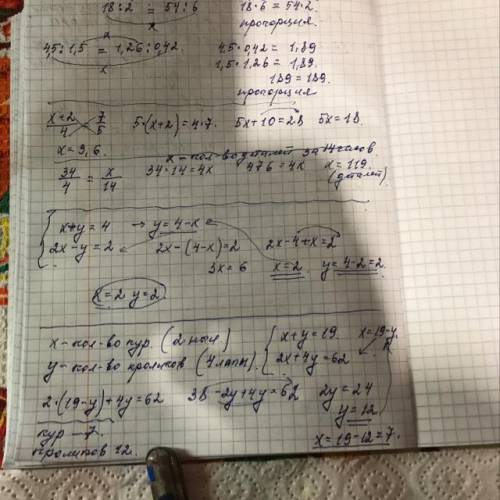 18:2 = 54:6 18·6 = 54·2.
x пропорция
4,5:1,5 = 1,26:0,42 4,5·0,42 = 1,89
x 1,5·1,26 = 1,89.
189 = 189.
пропорция
x+2/4 = 7/5 5·(x+2) = 4·7. 5x+10=28 5x=18.
x=3,6. x-кол-во деталей за 14 часов
34/4 = x/14 34·14=4x 476=4x x=119.
(деталей)
{ x+y=4 → y=4-x
2x-y=2 2x-(4-x)=2 2x-4+x=2
3x=6 x=2 y=4-2=2.
x=2 y=2.
x-кол-во кур. (2 ноги) { x+y=19. x=19-y.
y-кол-во кроликов (4 лапы). 2x+4y=62
2·(19-y)+4y=62 38-2y+4y=62 2y=24
y=12
кур - 7. x=19-12=7.
кроликов 12.